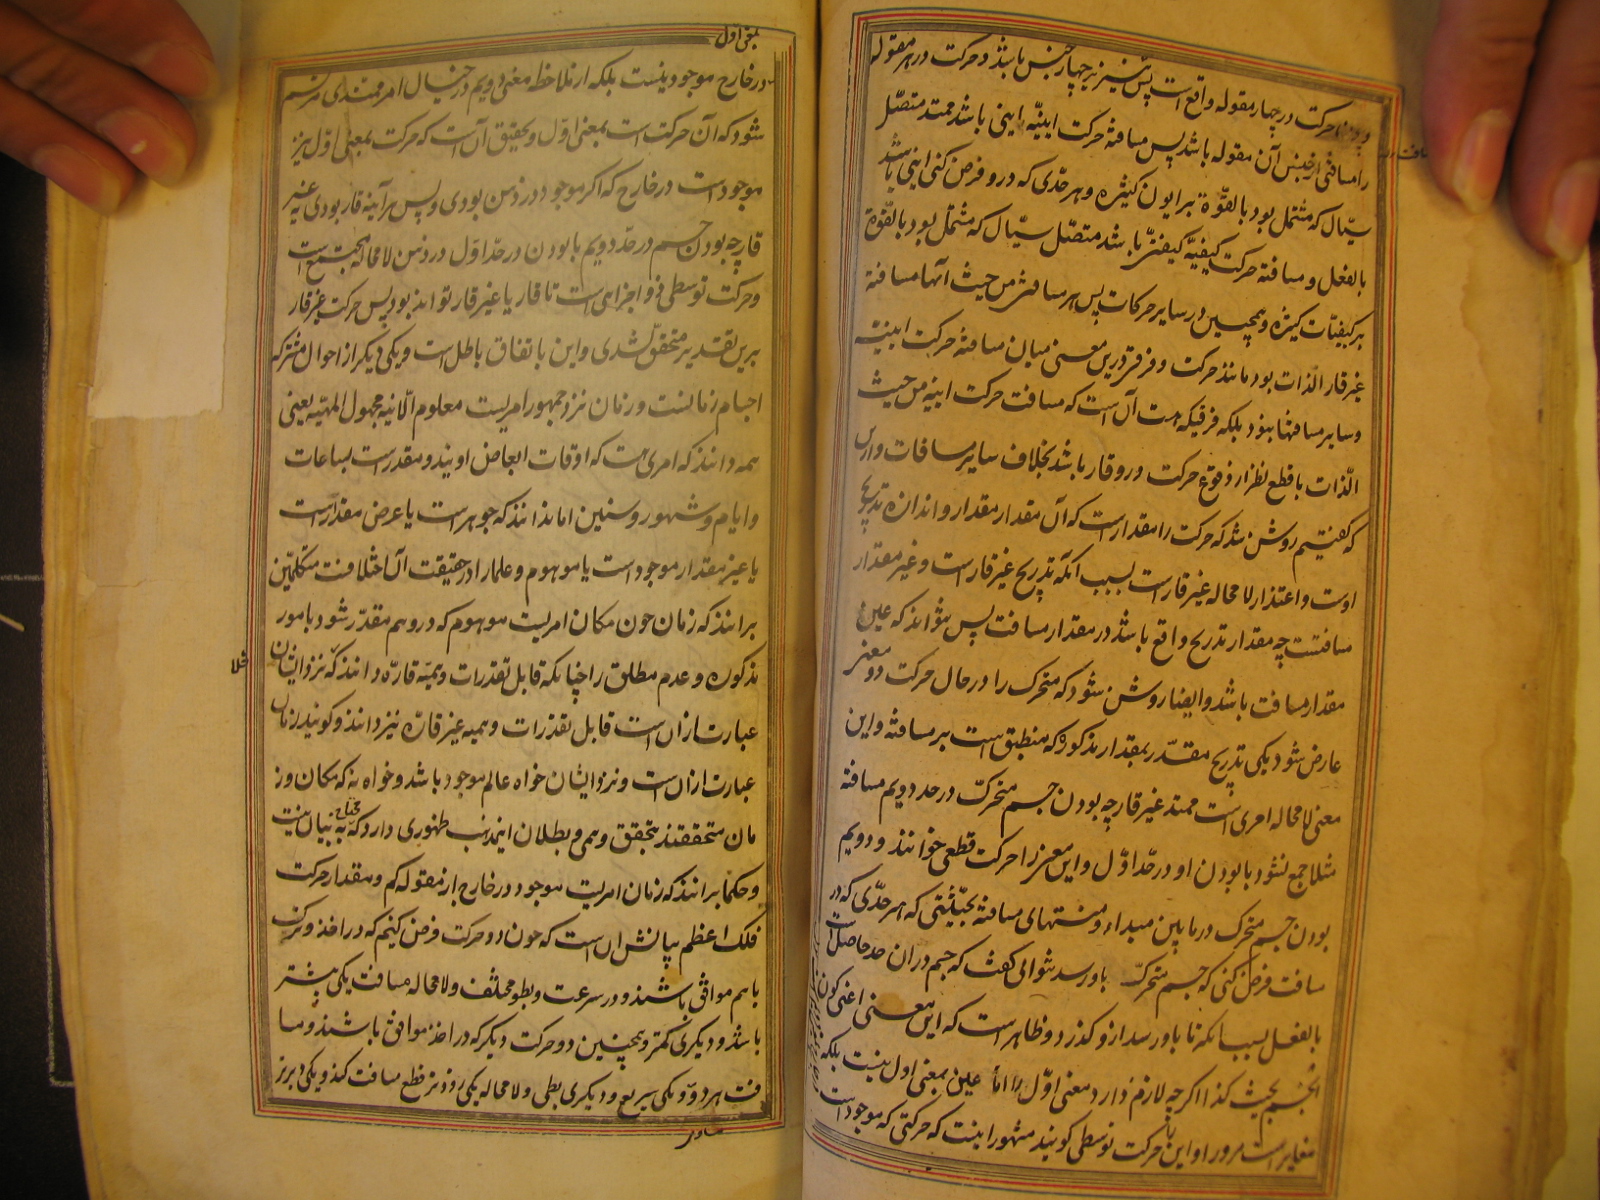 و چون حرکت در چهار مقوله واقع است پس نیز بر چهار جنس باشد و حرکت در هر مقوله
را مسافتی از جنس آن مقوله باشد پس مسافة حرکت اینیه اینی باشد ممتد متصل
سیال که مشتمل بود بالقوة بر ایون کثیره و هر حدی که درو فرض کنی اینی باشد
بالفعل و مسافة حرکت کیفیه کیفی باشد متصل سیال که مشتمل بود بالقوة
بر کیفیات کثیره و همچنین در سایر حرکات پس هر مسافتی من حیث انها مسافة
غیر قار الذات بود مانند حرکت و فرق درین معنی میان مسافة حرکت اینیه
و سایر مسافتها نبود بلکه فرقیکه هست آن است که مسافت حرکت اینیه من حیث
الذات با قطع نظر از وقوع حرکت درو قار باشد بخلاف سایر مسافات و ازین
که گفتیم روشن شد که حرکت را مقداریست که آن مقدار مقدار و اندازه تدریج
اوست و اعتذار لا محاله غیر قار است بسبب آنکه تدریج غیر قار است و غیر مقدار
مسافتست چه مقدار تدریج واقع باشد در مقدار مسافت پس نتواند که عین
مقدار مسافت باشد و ایضا روشن شود که متحرک را در حال حرکت دو معنی
عارض شود یکی تدریج مقدر بمقدار مذکور که منطبق است بر مسافة و این
معنی لا محاله امری است ممتد غیر قار چه بودن جسم متحرک در حد دویم مسافة
مثلا جمع نشود با بودن او در حد اول و این معنی را حرکت قطعی خوانند و دویم
بودن جسم متحرک در مابین مبداء و منتهای مسافة بحیثیتی که هر حدی که در
مسافت فرض کنی که جسم متحرک باو رسد توانی گفت که جسم در آن حد حاصل است
بالفعل بسبب انکه تا باو رسد ازو گذرد و ظاهر است که این معنی اعنی کون
الجسم بحیث کذا اگر چه لازم دارد معنی اول را اما عین معنی اول نیست بلکه
مغایر است مرور او این را حرکت توسطی گویند مشهور اینست که حرکتی که موجود است
بمعنی اول
در خارج موجود نیست بلکه از ملاحظه معنی دویم در خیال امر ممتدی مرتسم
شود که آن حرکت است بمعنی اول و تحقیق آن است که حرکت بمعنی اول نیز
موجود است در خارج که اگر موجود در ذهن بودی و بس هر آینه قار بودی نه غیر
قار چه بودن جسم در حد دویم با بودن در حد اول در ذهن لا محاله مجتمع است
و حرکت توسطی ذو اجزا نیست تا قار یا غیر قار تواند بود پس حرکت غیر قار
برین تقدیر متحقق نشدی و این باتفاق باطل است و یکی دیگر از احوال مشترکه
اجسام زمانست و زمان نزد جمهور امریست معلوم الانیه مجهول المهیه یعنی
همه دانند که امری هست که اوقات ابعاض اویند و مقدر است بساعات
و ایام و شهور و سنین اما ندانند که جوهر است یا عرض مقدار است
یا غیر مقدار موجود است یا موهوم و علما را در حقیقت آن اختلافست متکلمین
برانند که زمان چون مکان امریست موهوم که در وهم مقدر شود بامور
مذکوره و عدم مطلق را چنانکه قابل تقدرات وهمیه قاره دانند که نزد ایشان خلا
عبارت ازان است قابل تقدرات وهمیه غیر قاره نیز دانند و گویند زمان
عبارت ازان است و نزد ایشان خواه عالم موجود باشد و خواه نه که مکان و ز
مان متحققند بتحقق وهمی و بطلان این مذهب ظهوری دارد که محتاج به بیان نیست
و حکما برانند که زمان امریست موجود در خارج از مقوله کم و مقدار حرکت
فلک اعظم بیانش ان است که چون دو حرکت فرض کنیم که در اخذ و ترک
با هم موافق باشند و در سرعت و بطو مختلف و لا محاله مسافت یکی بیشتر
باشد و دیگری کمتر و همچنین دو حرکت دیگر که در اخذ موافق باشند و مسا
فت هر دو و یکی سریع و دیگری بطی و لا محاله یکی زودتر قطع مسافت کند و یکی دیرتر